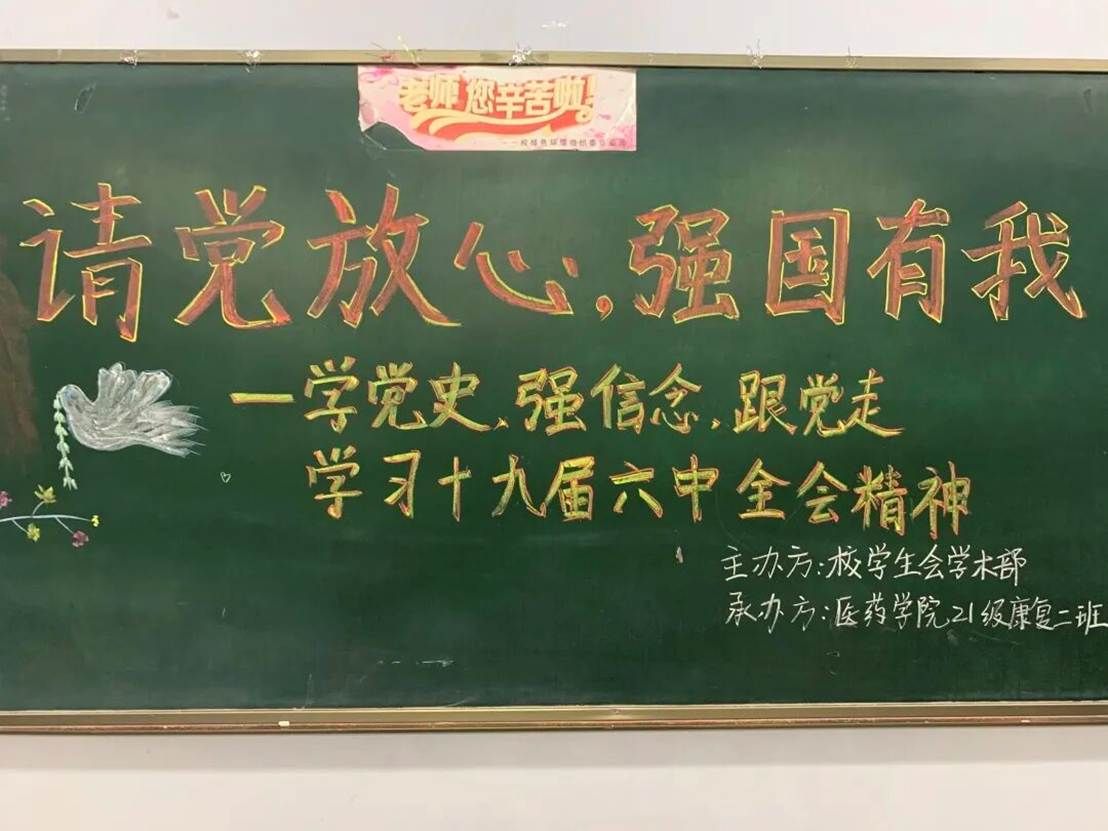 老师 您辛苦啦!
请党放心,强国有我
一学党史、强信念,跟党走
学习十九届六中全会精神
主办方:校学生会学术部
承办方:医药学院21级康复二班